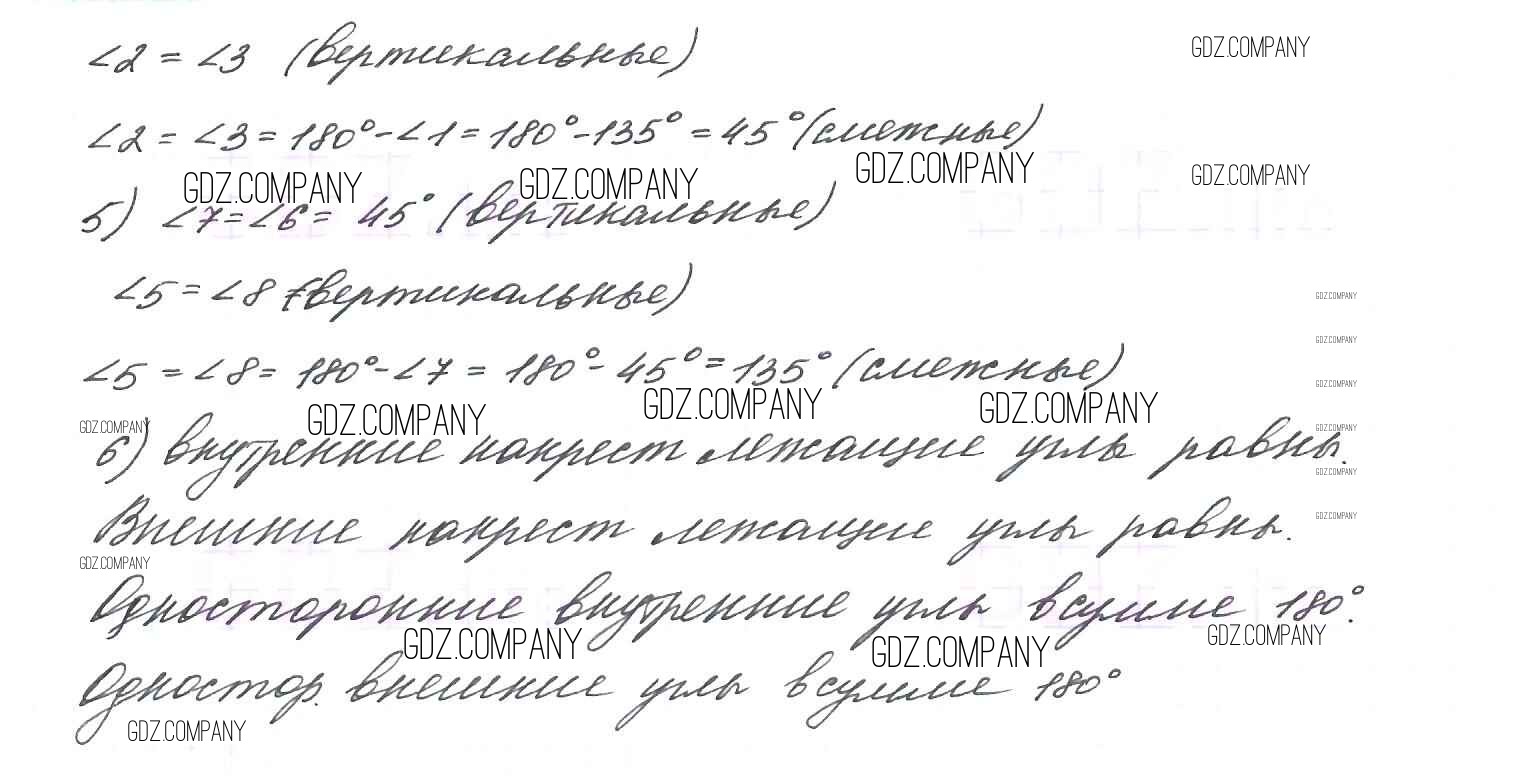 ∠2 = ∠3 (вертикальные)
GDZ.COMPANY
∠2 = ∠3 = 180° - ∠1 = 180° - 135° = 45° (смежные)
GDZ.COMPANY GDZ.COMPANY GDZ.COMPANY GDZ.COMPANY
5) ∠7 = ∠6 = 45° (вертикальные)
∠5 = ∠8 (вертикальные)
GDZ.COMPANY
GDZ.COMPANY
∠5 = ∠8 = 180° - ∠7 = 180° - 45° = 135° (смежные)
GDZ.COMPANY
GDZ.COMPANY GDZ.COMPANY GDZ.COMPANY GDZ.COMPANY GDZ.COMPANY
6) внутренние накрест лежащие углы равны.
GDZ.COMPANY
Внешние накрест лежащие углы равны.
GDZ.COMPANY
GDZ.COMPANY
Односторонние внутренние углы в сумме 180°.
GDZ.COMPANY GDZ.COMPANY GDZ.COMPANY
Одностор. внешние углы в сумме 180°
GDZ.COMPANY